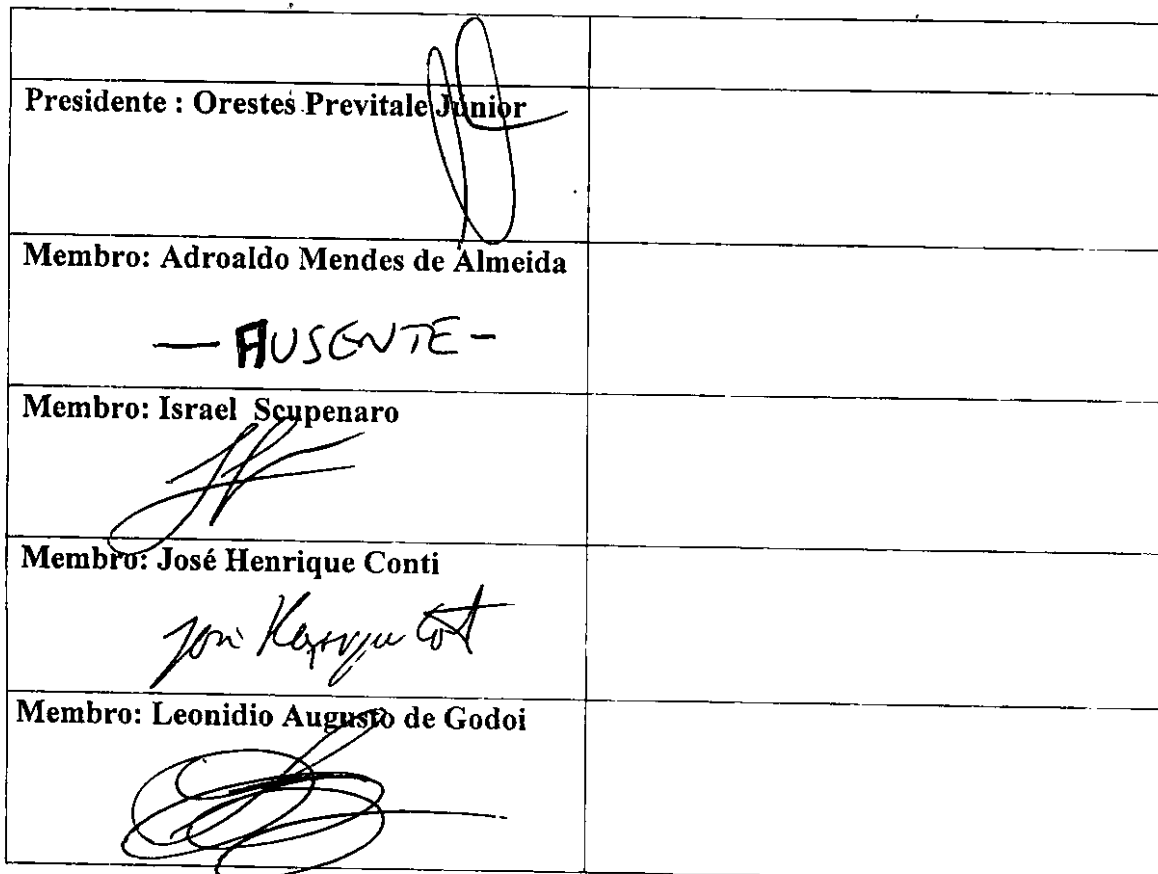 Presidente : Orestes Previtale Júnior
Membro: Adroaldo Mendes de Almeida
— AUSENTE -
Membro: Israel Scupenaro
Membro: José Henrique Conti
José Henrique Conti
Membro: Leonidio Augusto de Godoi